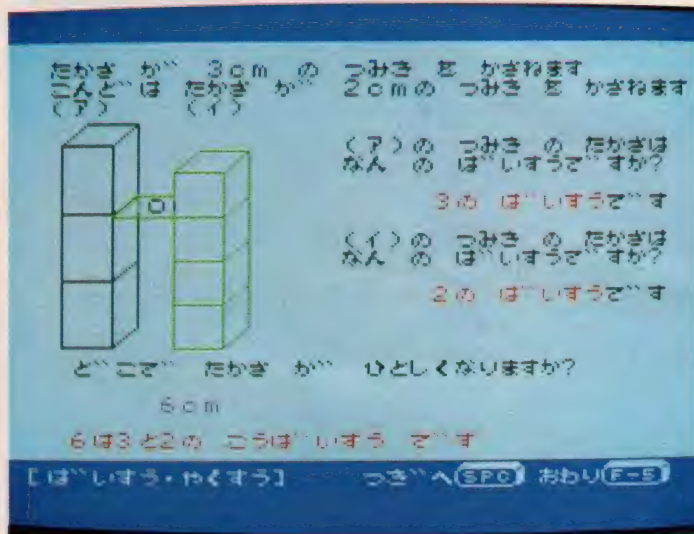 たかさ が 3cm の つみき を かさねます
こんどは たかさ が 2cmの つみき を かさねます
(ア) (イ)
(ア)の つみき の たかさは
なん の ばいすうですか?
3の ばいすうです
(イ)の つみき の たかさは
なん の ばいすうですか?
2の ばいすうです
どこで たかさ が ひとしくなりますか?
6cm
6は3と2の こうばいすう です
[ばいすう・やくすう] つぎへ(SPC) おわり(F-5)